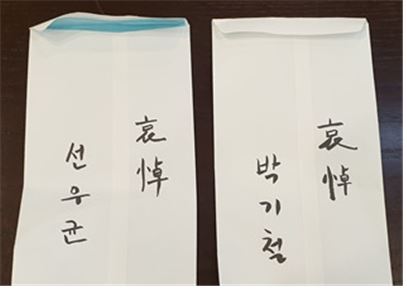 哀悼
선우균
哀悼
박기철